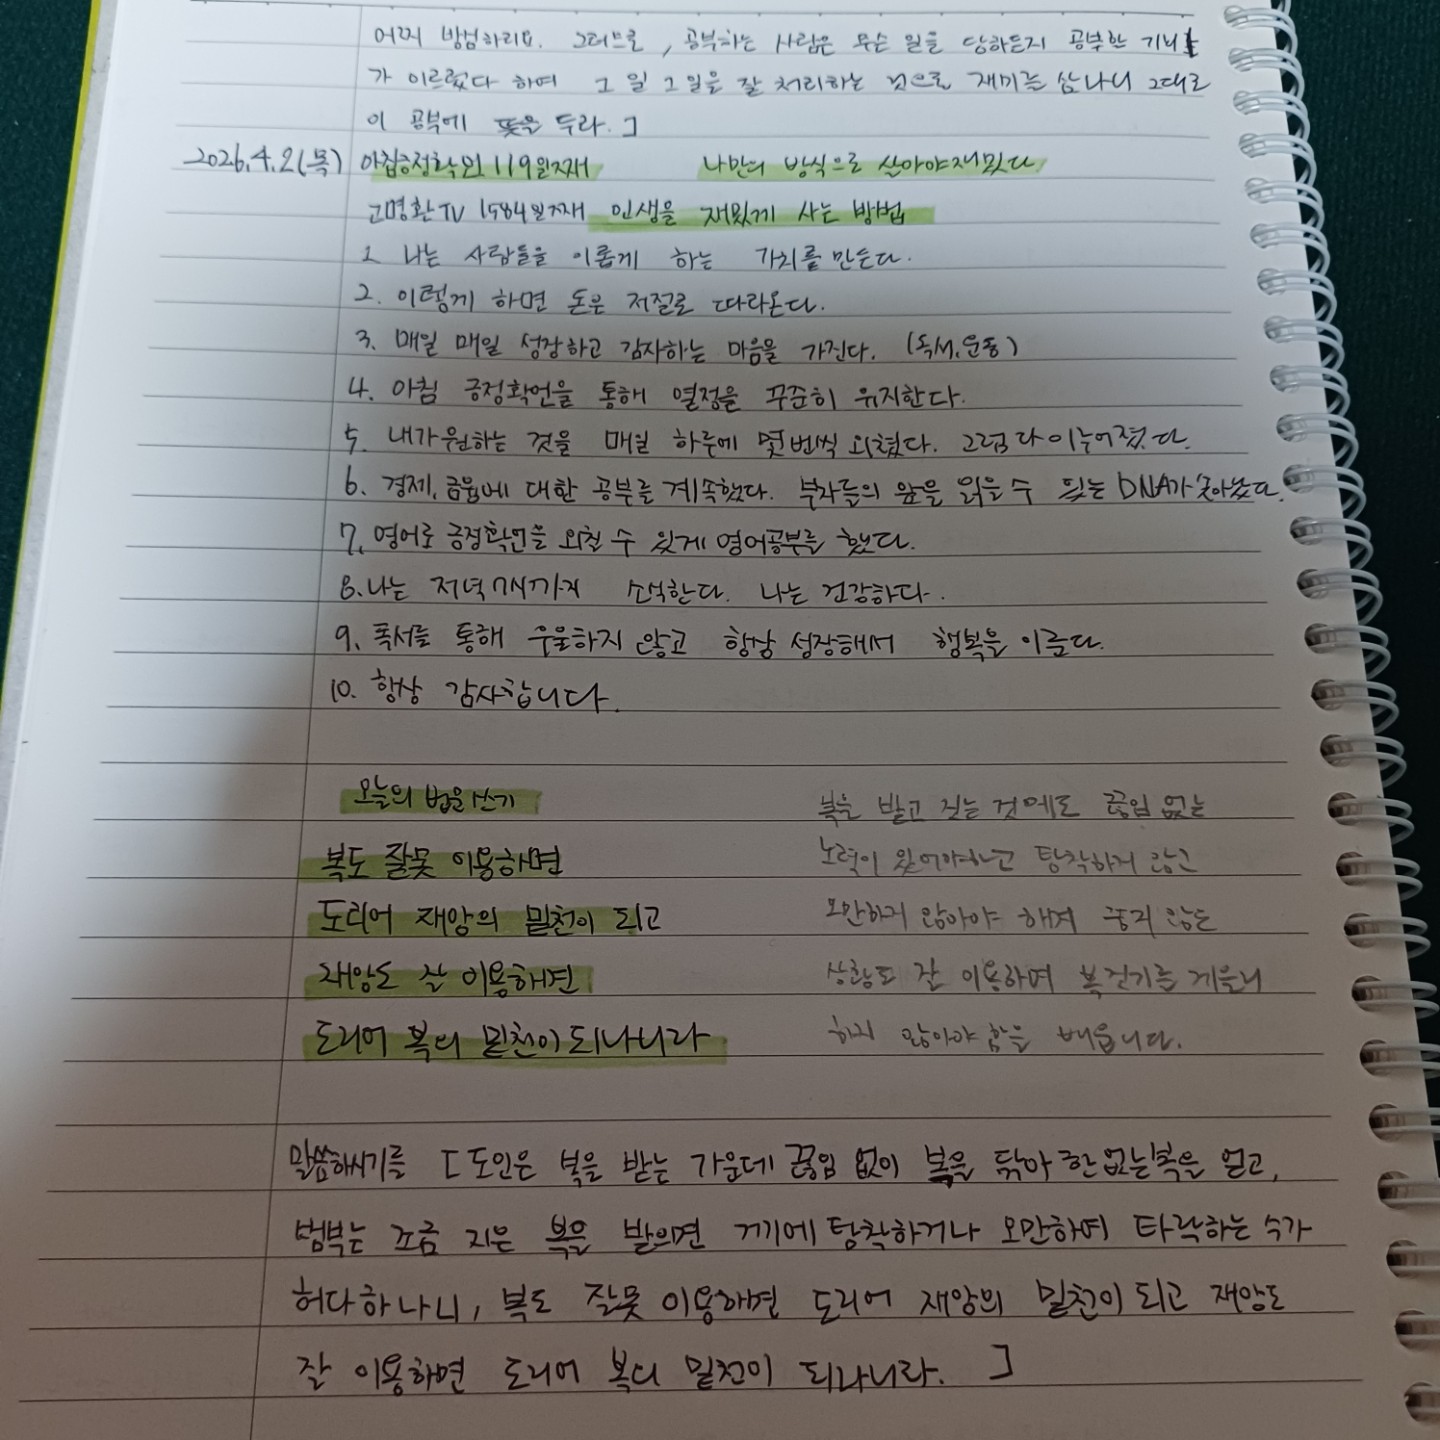 어찌 방심하리요. 그러므로, 공부하는 사람은 무슨 일을 당하든지 공부할 기회
가 이르렀다 하여 그 일 그 일을 잘 처리하는 것으로 재미를 삼나니 그대도
이 공부에 뜻을 두라.]
2026.4.2(목) 아침긍정확언 119일째 나만의 방식으로 살아야재밌다
고명환TV 1584일째 인생을 재밌게 사는 방법
1. 나는 사람들을 이롭게 하는 가치를 만든다.
2. 이렇게 하면 돈은 저절로 따라온다.
3. 매일 매일 성장하고 감사하는 마음을 가진다. (독서, 운동)
4. 아침 긍정확언을 통해 열정을 꾸준히 유지한다.
5. 내가 원하는 것을 매일 하루에 몇번씩 외쳤다. 그럼 다 이루어졌다.
6. 경제, 금융에 대한 공부를 계속했다. 부자들의 앞을 읽을 수 있는 DNA가
7. 영어로 긍정확언을 외칠 수 있게 영어공부를 했다.
8. 나는 저녁 7시까지 소식한다. 나는 건강하다.
9. 독서를 통해 우울하지 않고 항상 성장해서 행복을 이룬다.
10. 항상 감사합니다.
오늘의 법문쓰기
복도 잘못 이용하면
도리어 재앙의 밑천이 되고
재앙도 잘 이용하면
도리어 복의 밑천이 되나니라
복을 받고 짓는 것에도 끊임 없는
노력이 있어야하고 탐착하지 않고
오만하지 않아야 해져 좋지 않은
상황도 잘 이용하여 복 짓기를 게을리
하지 않아야 함을 배웁니다.
말씀하시기를 [도인은 복을 받는 가운데 끊임 없이 복을 닦아 한없는 복을 얻고,
범부는 조금 지은 복을 받으면 거기에 탐착하거나 오만하여 타락하는 수가
허다하나니, 복도 잘못 이용하면 도리어 재앙의 밑천이 되고 재앙도
잘 이용하면 도리어 복의 밑천이 되나니라.]